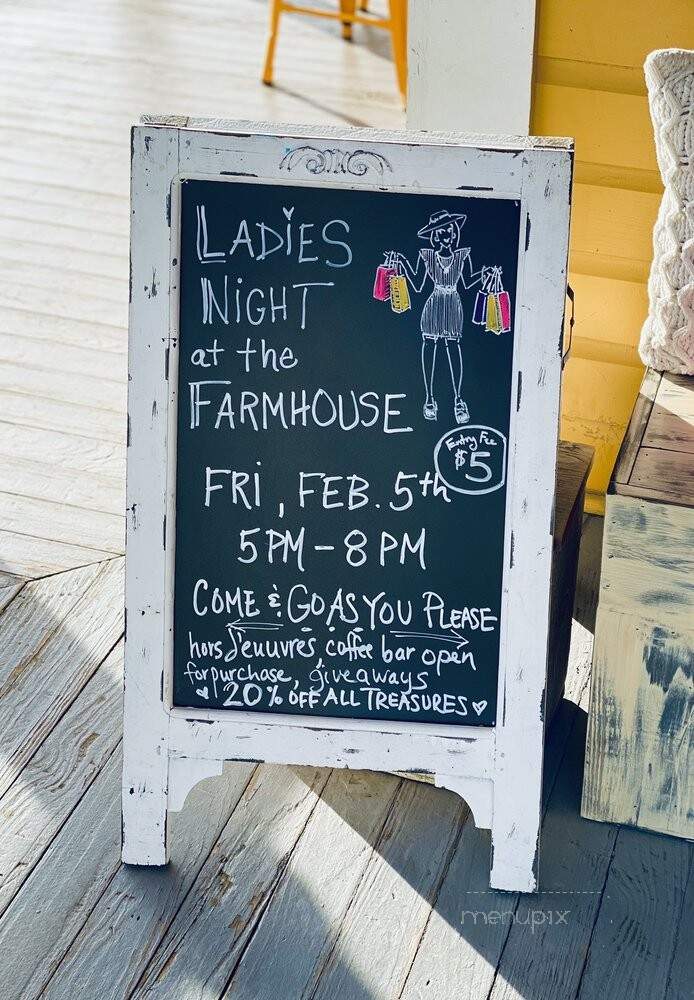 LADIES
NIGHT
at the
FARMHOUSE
Entry Fee
$5
FRI, FEB. 5th
5PM-8PM
COME & GO AS YOU PLEASE
hors d'euuvres, coffee bar open
for purchase, giveaways
20% OFF ALL TREASURES
menupix